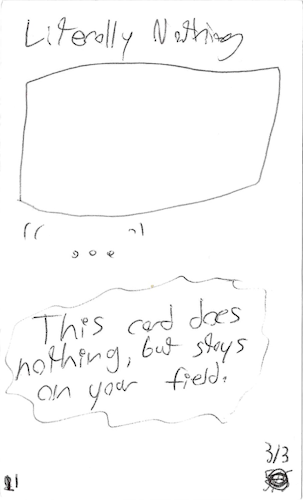 Literally Nothing
This card does
nothing, but stays
on your field.
3/3